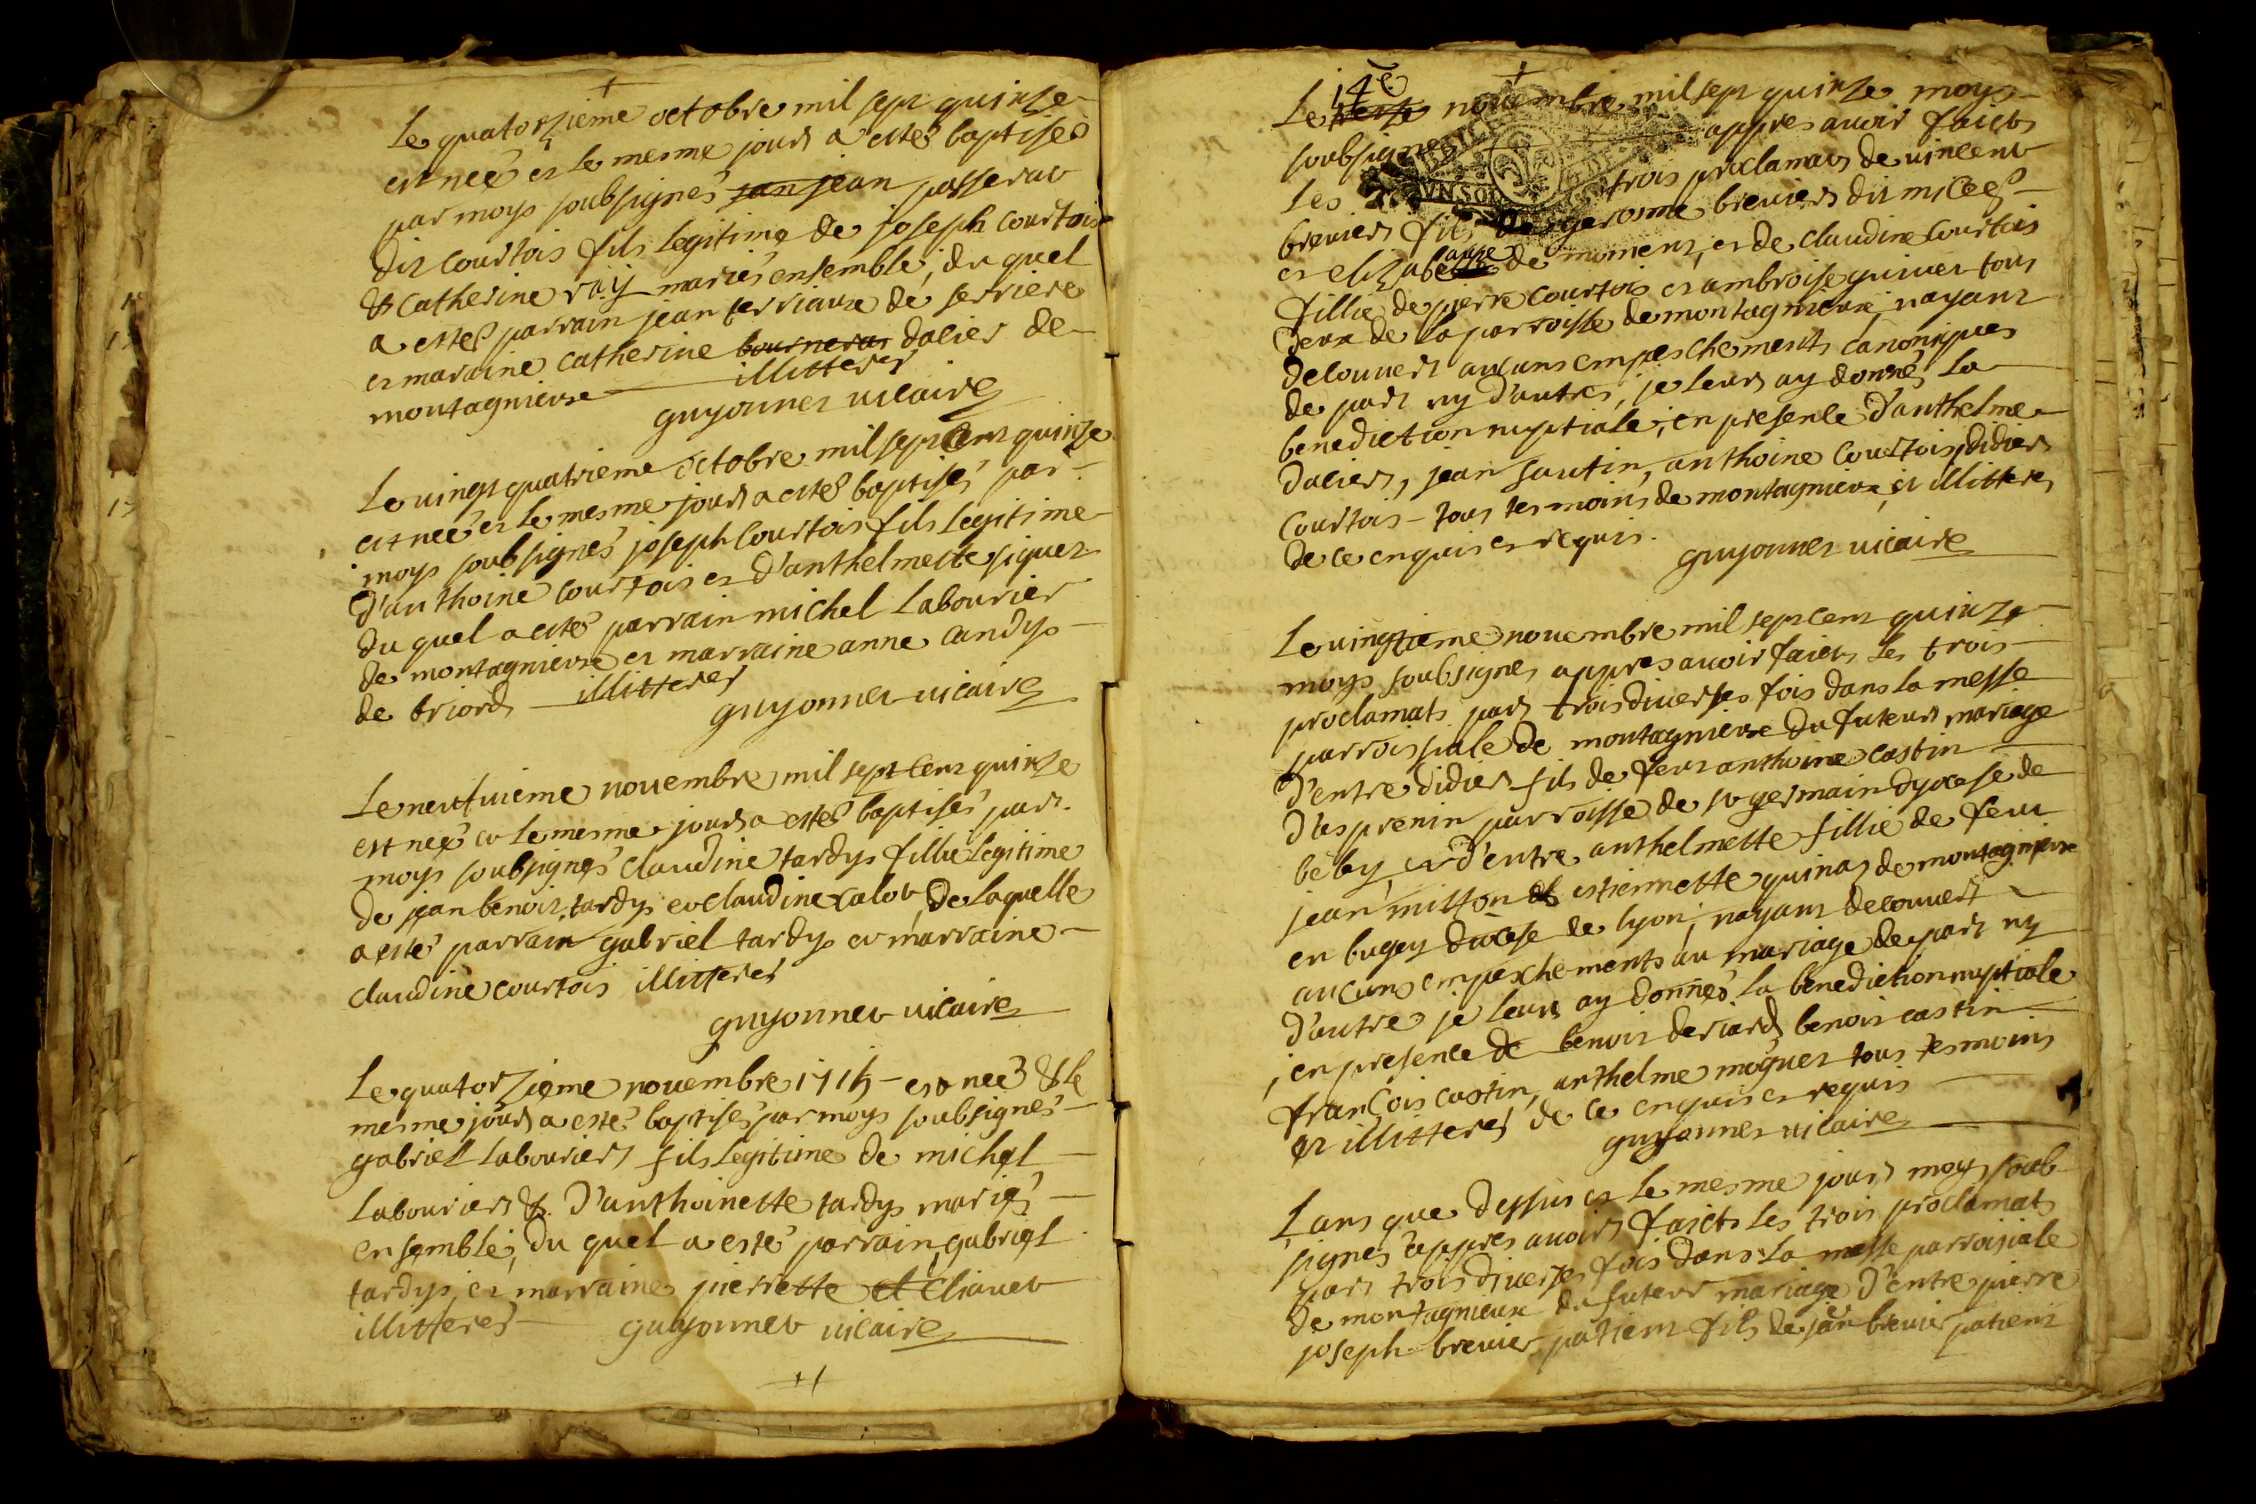 Le quatorzieme octobre mil sept quinze
est neé et le mesme jour a esté baptisé
par moy soubsigné jean jean passerat
dit courtois fils legitime de joseph courtois
& catherine ray mariés ensemble, du quel
a esté parrain jean terriaux de serriere
et maraine catherine dalier de
montagnieux illitteres
guyonnet vicaire
Le vingt quatrieme octobre mil sept cent quinze
est neé et le mesme jour a esté baptisé par
moy soubsigné joseph courtois fils legitime
d'anthoine courtois et d'anthelmette siquet
du quel a esté parrain michel labourier
de montagnieux et marraine anne candy
de briord illitteres
guyonnet vicaire
Le neufvieme novembre mil sept cent quinze
est neé et le mesme jour a esté baptisé par
moy soubsigné claudine tardy fillie legitime
de jean benoit tardy et claudine calot, de laquelle
a esté parrain gabriel tardy et marraine
claudine courtois illitteres
guyonnet vicaire
Le quatorzieme novembre 1715 est neé & le
mesme jour a esté baptisé par moy soubsigné
gabriel labourier fils legitime de michel
labourier & d'anthoinette tardy mariés
ensemble, du quel a esté parrain gabriel
tardy, et marraine pierrette
illitteres guyonnet vicaire
14e
Le novembre mil sept quinze moy
soubsigné appres avoir faict
les trois proclamats de vincent
brevier fils de gerosme brevier dit
et de niment, et de claudine courtois
fillie de pierre courtois et ambroise quinet tous
deux de la parroisse de montagnieux, nayant
decouvert aucuns empeschements canoniques
de part ny d'autre, je leur ay donné la
benediction nuptiale, en presence d'anthelme
dalier, jean sautin, anthoine courtois, didier
courtois tous tesmoins de montagnieux et illitteres
de ce enquis et requis.
guyonnet vicaire
Le vingtieme novembre mil sept cent quinze
moy soubsigné appres avoir faict les trois
proclamats par trois diverses fois dans la messe
parroissiale de montagnieux du futeur mariage
d'entre didier fils de feu anthoine castin
d'asprenin parroisse de st germain dyocese de
beley et d'entre anthelmette fillie de feu
jean mitton et estiennette quinat de montagnieux
en bugey diocese de lyon, nayant decouvert
aucuns empeschements au mariage de part ny
d'autre je leur ay donné la benediction nuptiale
en presence de benoit deriard benois castin
françois castin, anthelme moguet tous tesmoins
et illitteres de ce enquis et requis
guyonnet vicaire
Lans que dessus et le mesme jour moy soub
signé appres avoir faict les trois proclamats
par trois diverses fois dans la messe parroisiale
de montagnieux du futeur mariage d'entre pierre
joseph brevier patient fils de jean brevier patient